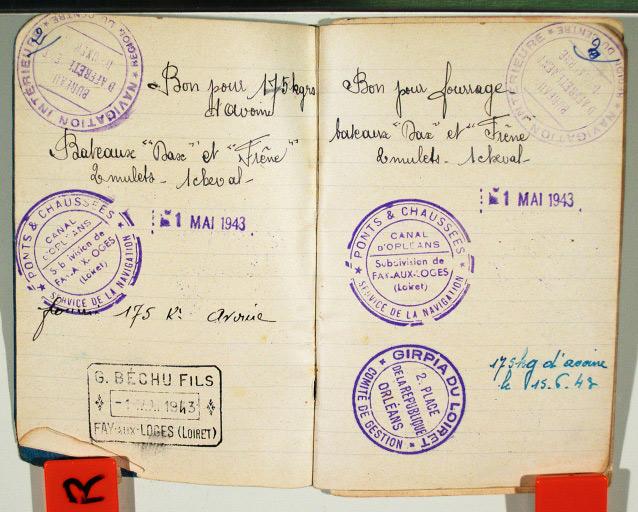 NAVIGATION INTÉRIEURE
BUREAU
D'AFFRÈTEMENT
Bon pour 175 kgrs
d'avoine
Bateaux "Dax" et "Frêne"
2 mulets - 1 cheval -
1 MAI 1943
PONTS & CHAUSSÉES
CANAL
D'ORLÉANS
Subdivision de
FAY-AUX-LOGES
(Loiret)
SERVICE DE LA NAVIGATION
175 Ks avoine
G. BÉCHU FILS
1943
FAY-AUX-LOGES (LOIRET)
NAVIGATION INTÉRIEURE
BUREAU
Bon pour fourrage
bateaux "Dax" et "Frêne
2 mulets - 1 cheval -
1 MAI 1943
PONTS & CHAUSSÉES
CANAL
D'ORLÉANS
Subdivision de
FAY-AUX-LOGES
(Loiret)
SERVICE DE LA NAVIGATION
GIRPIA DU LOIRET
2, PLACE
DE LA RÉPUBLIQUE
ORLÉANS
COMITÉ DE GESTION
175 kg d'avoine
le 15.6.43
R